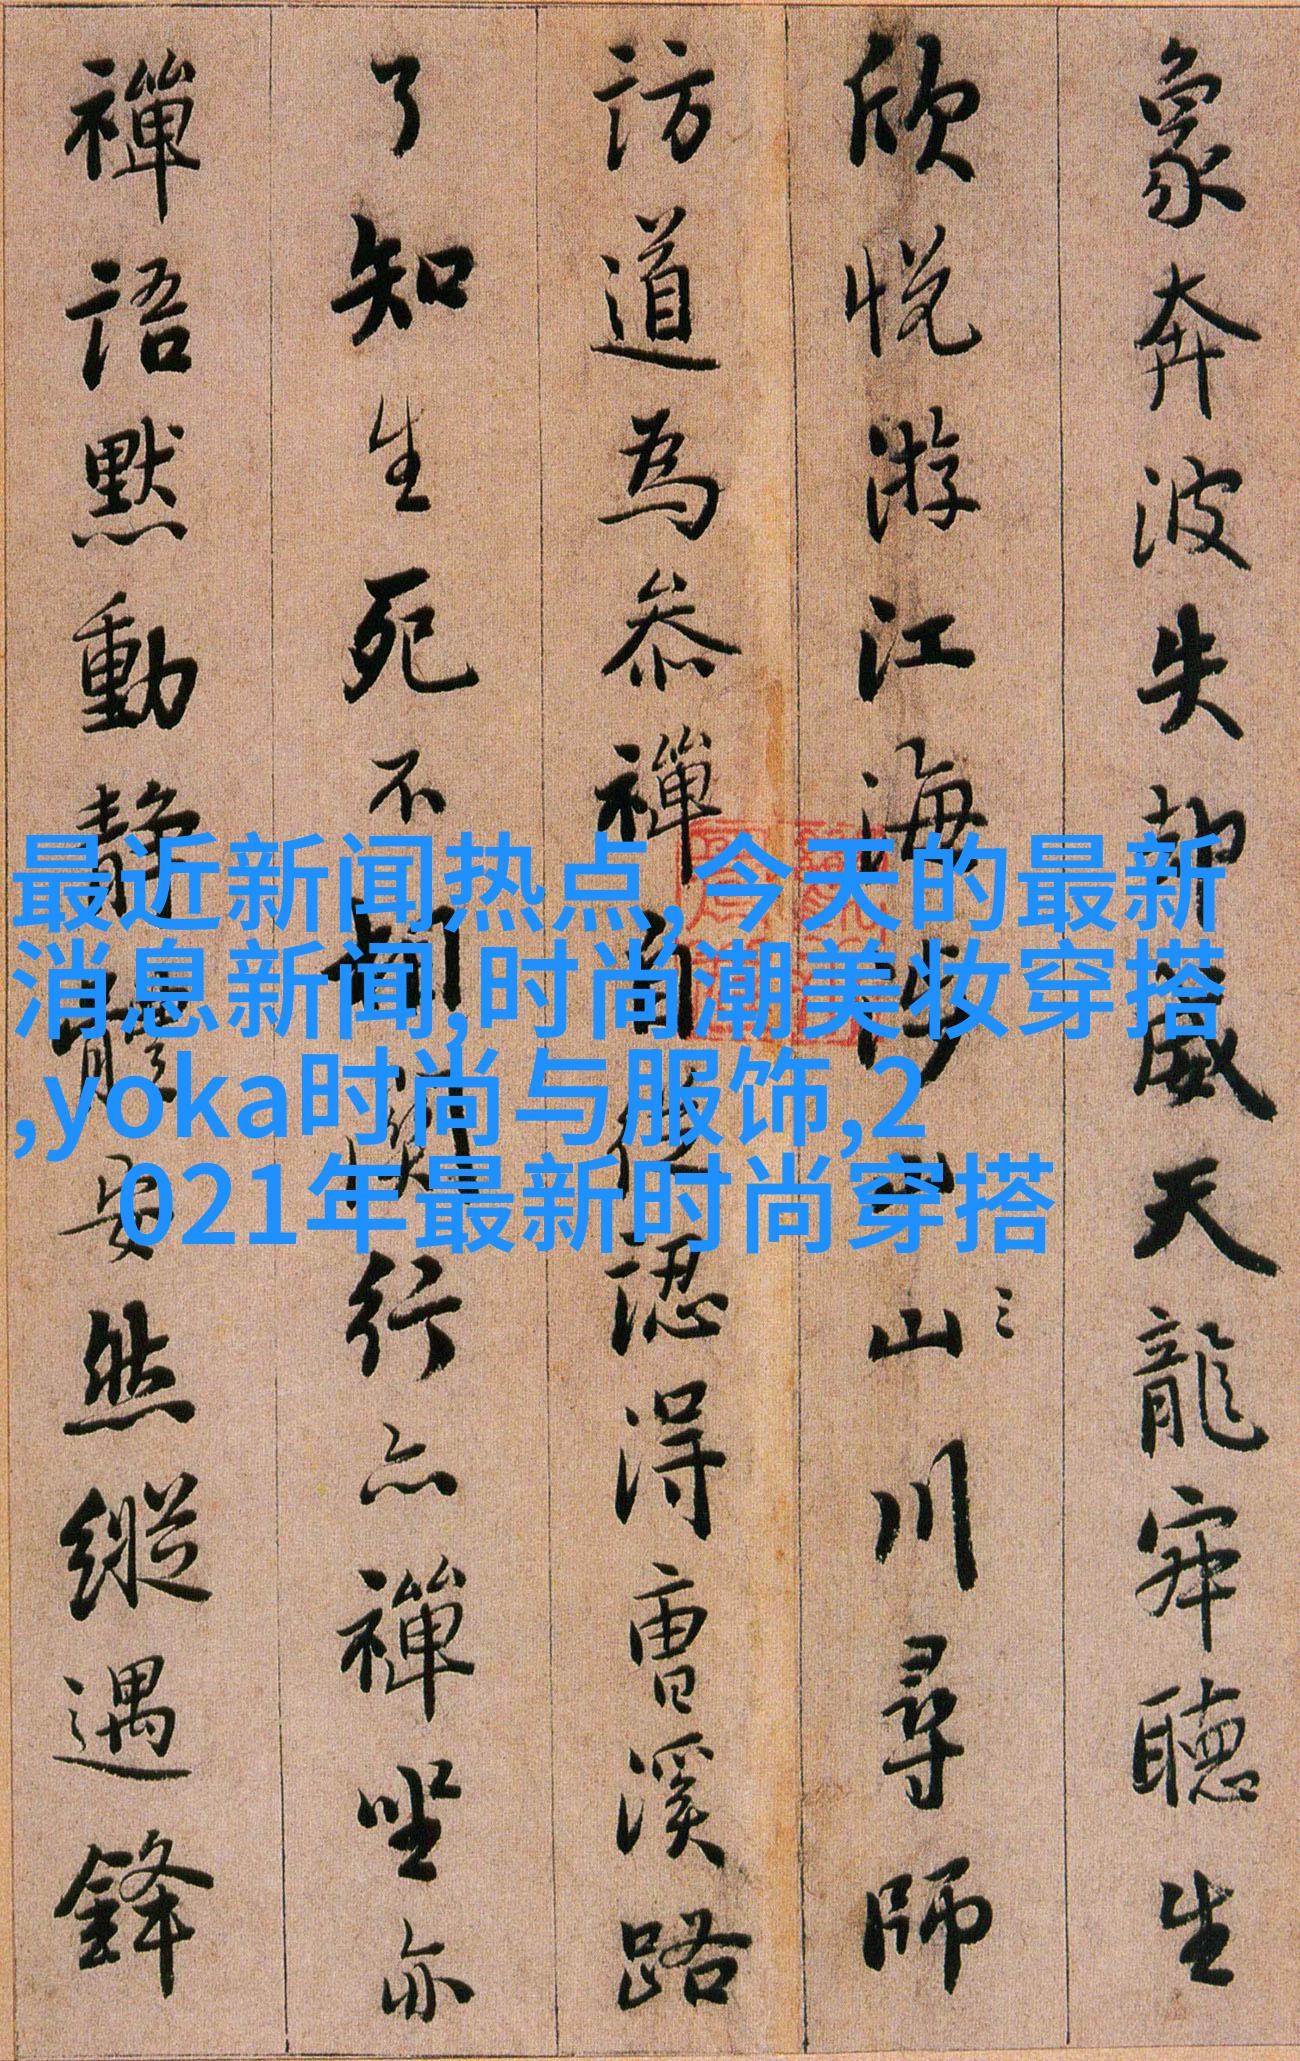 象奔波失却威天龍寂聽生
欣悦游江海涉山川尋師
訪道為參禪自從認得曹溪路
了知生死不相關行亦禪坐亦
禪語默動静體安然縱遇鋒
最近新闻热点,今天的最新
消息新闻,时尚潮美妆穿搭
,yoka时尚与服饰,2
021年最新时尚穿搭